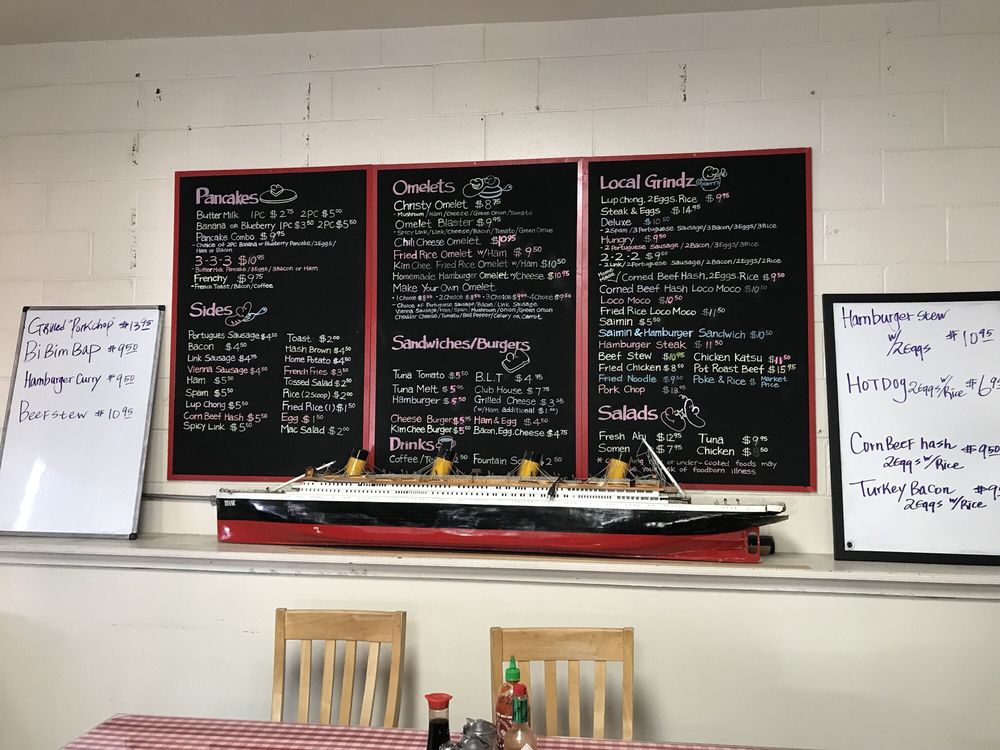 Grilled "Porkchop" $13.95
BiBimBap $9.50
Hamburger Curry $9.50
Beef Stew $10.95
Pancakes
Butter Milk 1PC $2.75 2PC $5.00
Banana or Blueberry 1PC $3.50 2PC $5.50
Pancake Combo $9.95
- Choice of 2PC Banana or Blueberry Pancake/2Eggs/
Ham or Bacon
3-3-3 $10.95
- Butter Milk Pancake/3Eggs/3Bacon or Ham
Frenchy $9.75
- French Toast/Bacon/Coffee
Sides
Portugues Sausage $4.50
Bacon $4.50
Link Sausage $4.75
Vienna Sausage $4.50
Ham $5.50
Spam $5.50
Lup Chong $5.50
Corn Beef Hash $5.50
Spicy Link $5.50
Toast $2.00
Hash Brown $4.50
Home Potato $4.50
French Fries $3.50
Tossed Salad $2.50
Rice (2 Scoop) $2.00
Fried Rice (1) $1.50
Egg $1.50
Mac Salad $2.00
Omelets
Christy Omelet $8.75
- Mushroom/Ham/Cheese/Green Onion/Tomato
Omelet Blaster $9.95
- Spicy Link/Link/Cheese/Bacon/Tomato/Green Onion
Chili Cheese Omelet $10.95
Fried Rice Omelet w/Ham $9.50
Kim Chee Fried Rice Omelet w/Ham $10.50
Homemade Hamburger Omelet w/Cheese $10.95
Make Your Own Omelet
- Choice of Portuguese Sausage/Bacon/Link Sausage
Vienna Sausage/Ham/Spam/Mushroom/Onion/Green Onion
Cheddar Cheese/Tomato/Bell Pepper/Celery or Carrot
Sandwiches/Burgers
Tuna Tomato $5.50
Tuna Melt $5.95
Hamburger $5.50
Cheese Burger $5.95
Kim Chee Burger $5.95
B.L.T $4.95
Club House $7.75
Grilled Cheese $3.25
(w/Ham additional $1.00)
Ham & Egg $4.50
Bacon, Egg, Cheese $4.75
Drinks
Coffee/Te
Fountain So 2.50
Local Grindz
Lup Chong, 2Eggs, Rice $9.95
Steak & Eggs $14.95
Deluxe $10.50
- 2Spam/3Portuguese Sausage/3Bacon/3Eggs/3Rice
Hungry $9.50
- 2Portuguese Sausage/2Bacon/3Eggs/3Rice
2-2-2 $9.50
- 2Link/2Portuguese Sausage/2Bacon/2Eggs/2Rice
Home Made Corned Beef Hash, 2Eggs, Rice $9.50
Corned Beef Hash Loco Moco $10.50
Loco Moco $10.50
Fried Rice Loco Moco $11.50
Saimin $5.50
Saimin & Hamburger Sandwich $10.50
Hamburger Steak $11.50
Beef Stew $10.95
Fried Chicken $8.50
Fried Noodle $9.50
Pork Chop
Chicken Katsu $11.50
Pot Roast Beef $15.95
Poke & Rice $ Market Price
Salads
Fresh Ahi $12.95
Somen $7.95
Tuna $9.95
Chicken $8.50
or under-cooked foods may
of foodborn illness
TITANIC
Hamburger Stew
w/2Eggs $10.95
HOTDOG 2Eggs w/Rice $6.95
Corn Beef hash
2Eggs w/Rice
Turkey Bacon $9
2Eggs w/Rice